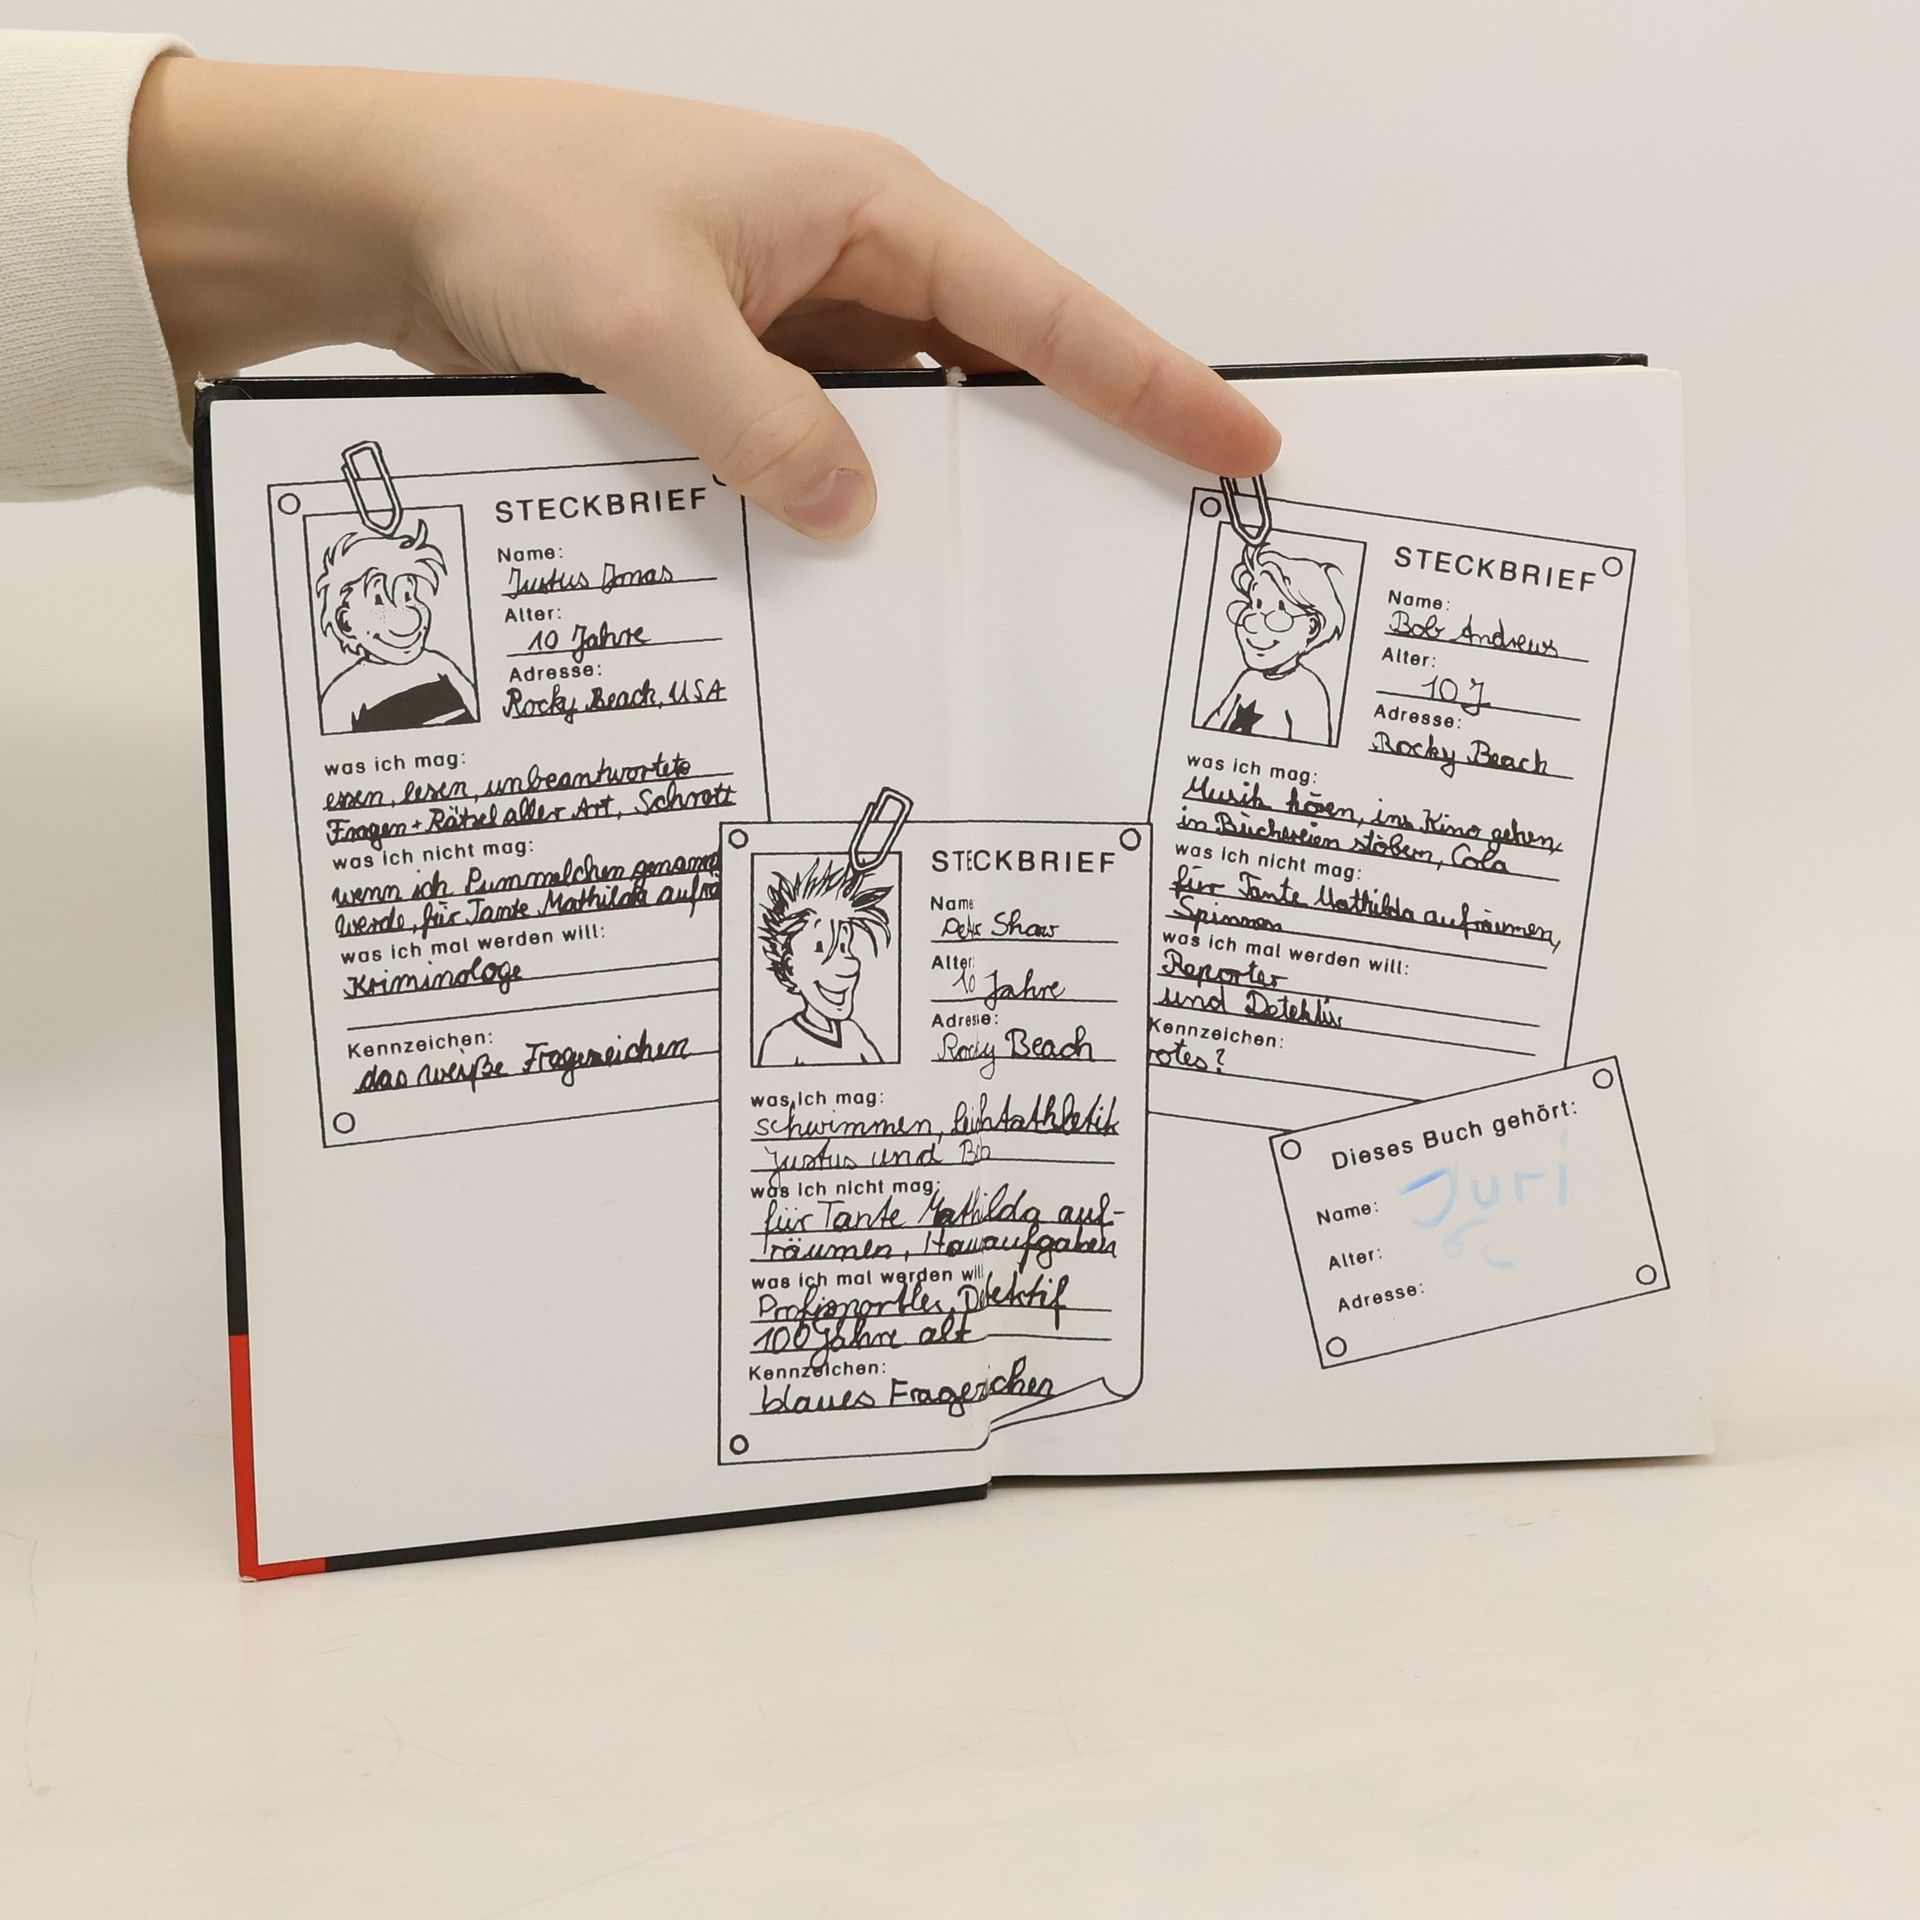 STECKBRIEF
Name:
Justus Jonas
Alter:
10 Jahre
Adresse:
Rocky Beach, USA
was ich mag:
essen, lesen, unbeantwortete
Fragen + Rätsel aller Art, Schrott
was ich nicht mag:
wenn ich Pummelchen genannt
werde, für Tante Mathilda aufrä
was ich mal werden will:
Kriminologe
Kennzeichen:
das weiße Fragezeichen
STECKBRIEF
Name
Peter Shaw
Alter:
10 Jahre
Adresse:
Rocky Beach
was ich mag:
schwimmen, Leichtathletik
Justus und Bob
was ich nicht mag:
für Tante Mathilda auf-
räumen, Hausaufgaben
was ich mal werden will
Profisportler, Detektif
100 Jahre alt
Kennzeichen:
blaues Fragezeichen
STECKBRIEF
Name:
Bob Andrews
Alter:
10 J
Adresse:
Rocky Beach
was ich mag:
Musik hören, ins Kino gehen,
in Büchereien stöbern, Cola
was ich nicht mag:
für Tante Mathilda aufräumen,
Spinnen
was ich mal werden will:
Reporter
und Detektiv
Kennzeichen:
rotes ?
Dieses Buch gehört:
Name: Juri
6c
Alter:
Adresse: